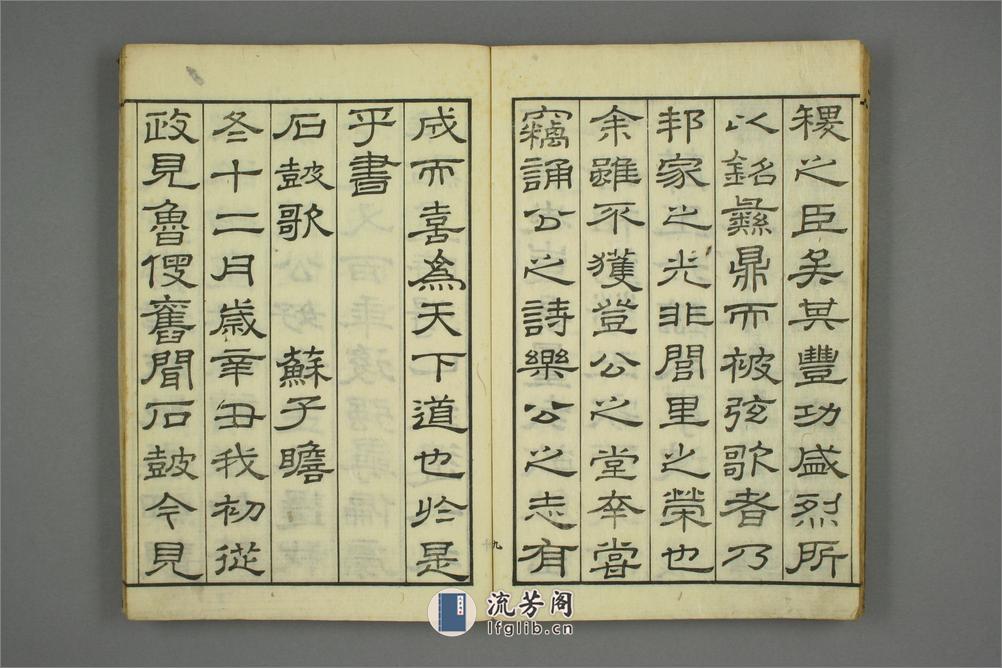 稷之臣矣其豐功盛烈所
以銘彝鼎而被弦歌者乃
邦家之光非閭里之榮也
余雖不獲登公之堂幸嘗
竊誦公之詩樂公之志有
成而喜爲天下道也於是
乎書
石鼓歌 蘇子瞻
冬十二月歲辛丑我初從
政見魯叟舊聞石鼓今見
十九
流芳阁
lfglib.cn